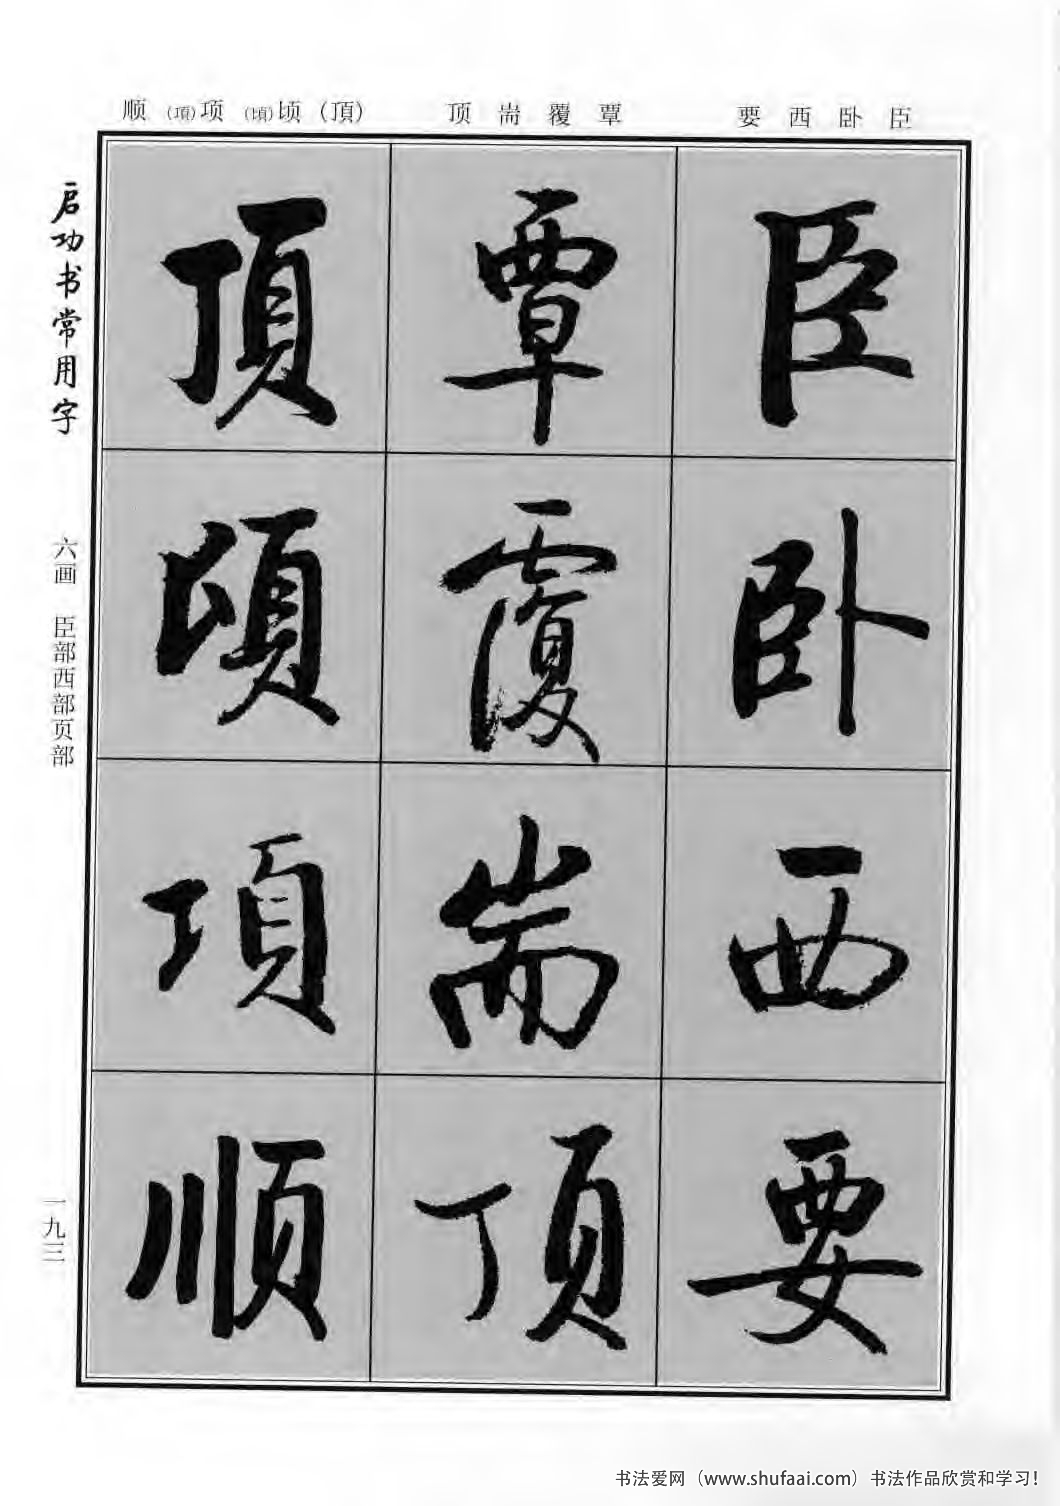 要 西 卧 臣
顶 耑 覆 覃
顺 (項)项 (頃)顷 (頂)
臣
卧
西
要
覃
覆
耑
顶
頂
頃
項
顺
启功书常用字
六画 臣部西部页部
一九三
书法爱网（www.shufaai.com）书法作品欣赏和学习!